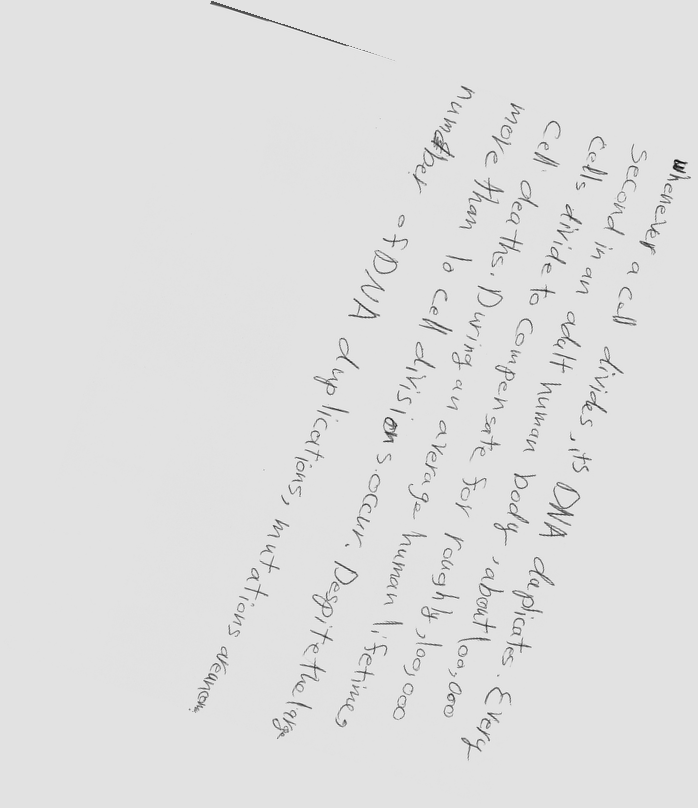 Whenever a cell divides, its DNA duplicates. Every
second in an adult human body, about 100,000
cells divide to compensate for roughly, 100,000
cell deaths. During an average human lifetime,
more than 10 cell divisions occur. Despite the large
number of DNA duplications, mutations are